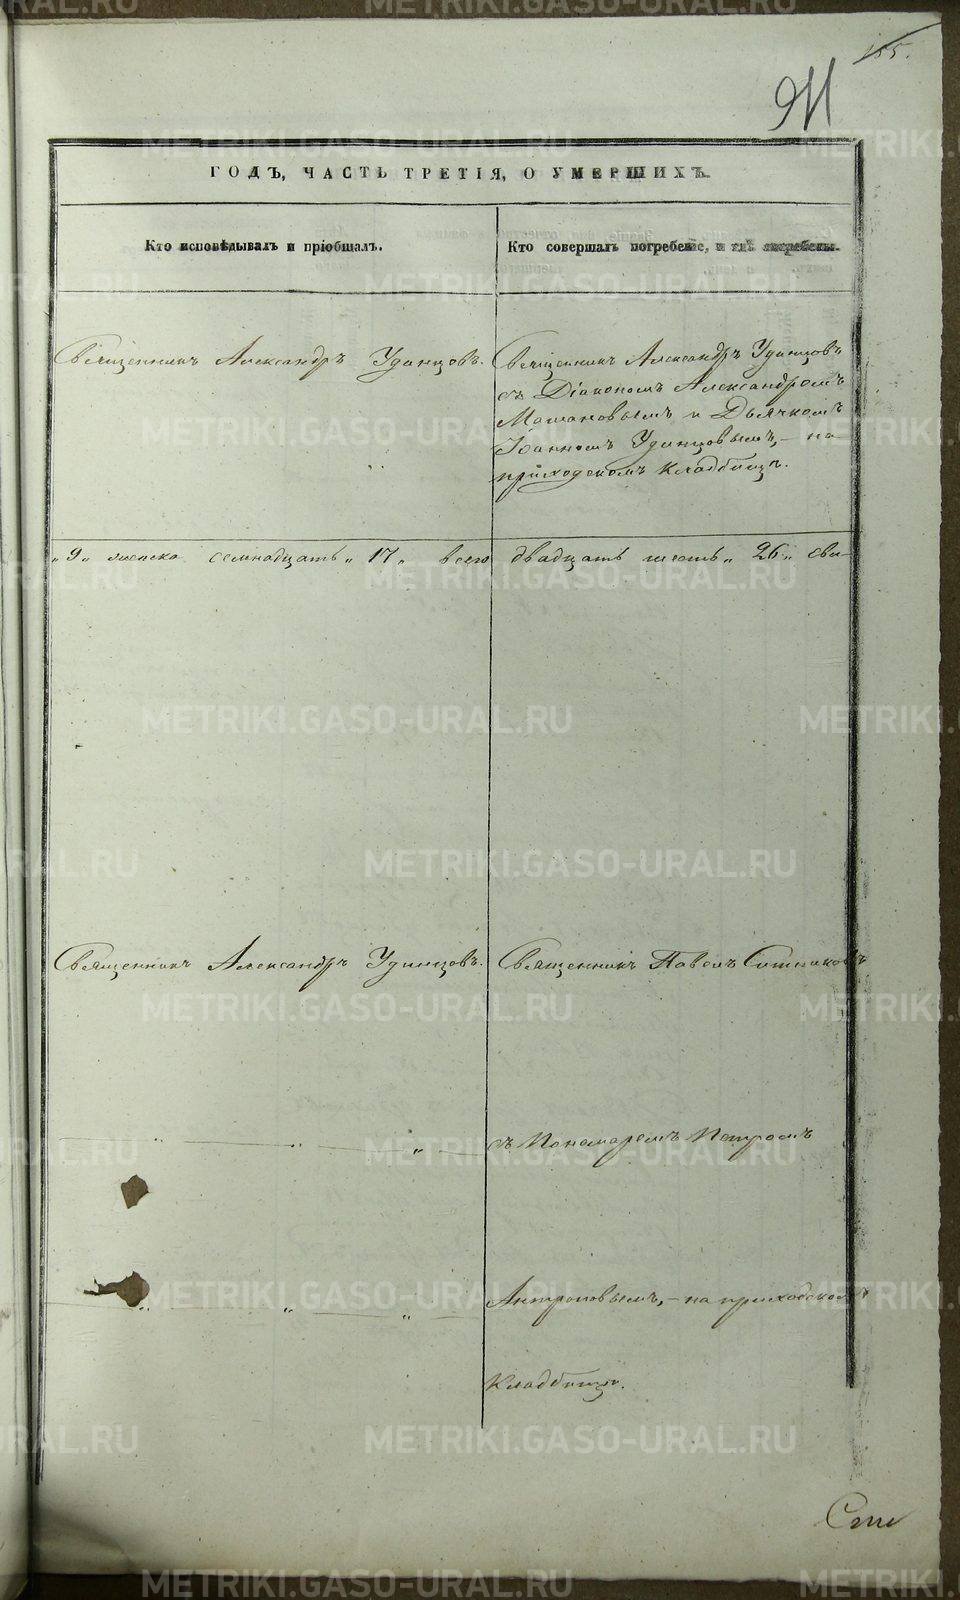 155.
911
ГОДЪ, ЧАСТЬ ТРЕТІЯ, О УМЕРШИХЪ.
Кто исповѣдывалъ и пріобщалъ.
Кто совершалъ погребеніе, и гдѣ погребены.
Священникъ Александръ Удинцовъ.
Священникъ Александръ Удинцовъ
съ Діакономъ Александромъ
и Дьячкомъ
Іоанномъ Удинцовымъ, – на
приходскомъ кладбищѣ.
„ 9 „ женска семнадцать „ 17 „ всего двадцать шесть „ 26 „
Священникъ Александръ Удинцовъ.
Священникъ Павелъ Ситниковъ
съ Пономаремъ Петромъ
Антроповымъ, – на приходскомъ
кладбищѣ.
METRIKI.GASO-URAL.RU